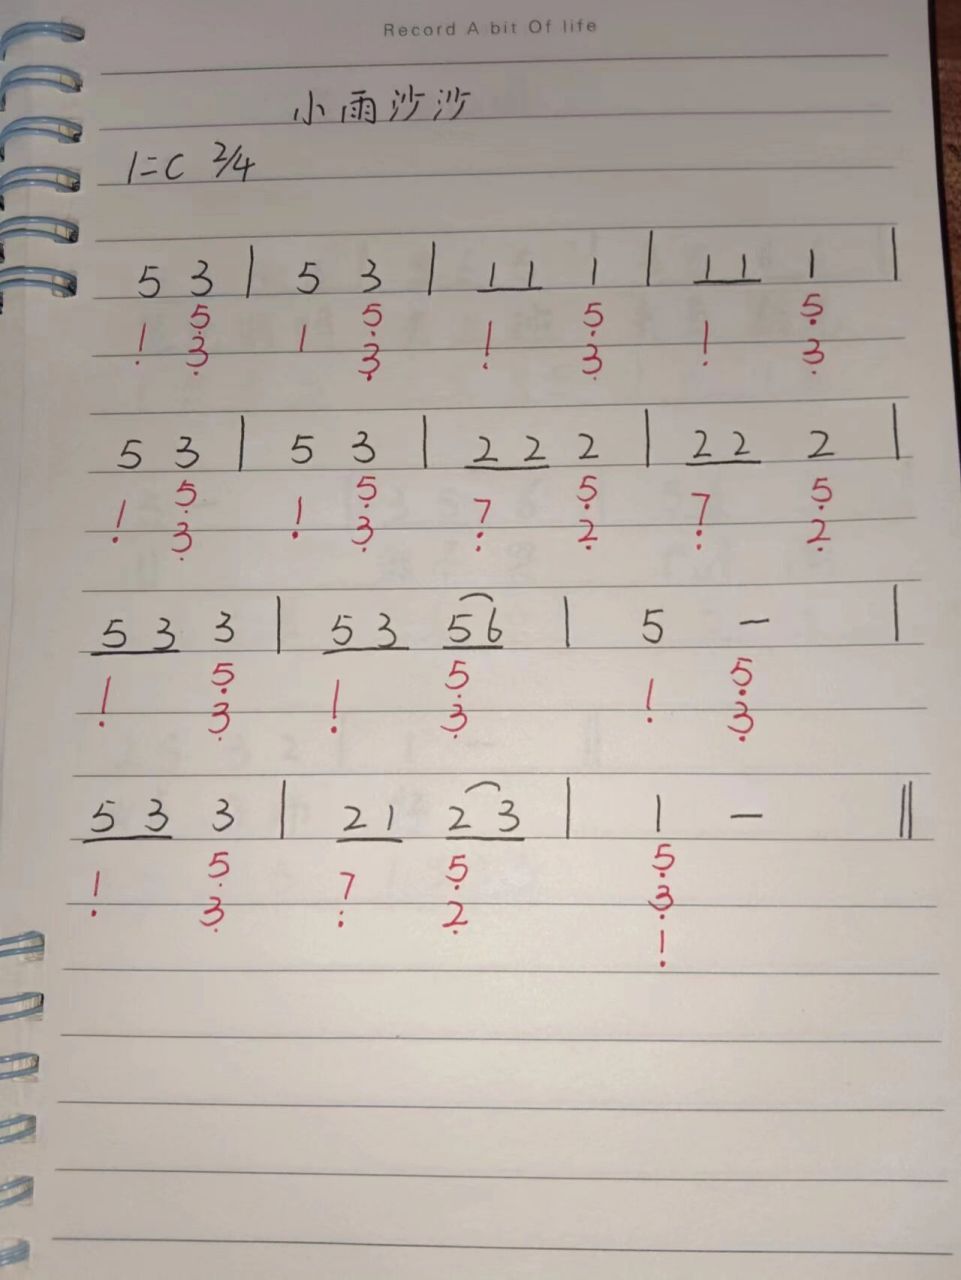 Record A bit Of life
小雨沙沙
1=C 2/4
5 3 | 5 3 | 1 1 1 | 1 1 1 |
1̣ 5̣ 1̣ 5̣ 1̣ 5̣ 1̣ 5̣
3̣ 3̣ 3̣ 3̣
5 3 | 5 3 | 2 2 2 | 2 2 2 |
1̣ 5̣ 1̣ 5̣ 7̣̣ 5̣ 7̣̣ 5̣
3̣ 3̣ 2̣ 2̣
5 3 3 | 5 3 5 6 | 5 – |
1̣ 5̣ 1̣ 5̣ 1̣ 5̣
3̣ 3̣ 3̣
5 3 3 | 2 1 2 3 | 1 – ‖
1̣ 5̣ 7̣̣ 5̣ 5̣
3̣ 2̣ 3̣
1̣